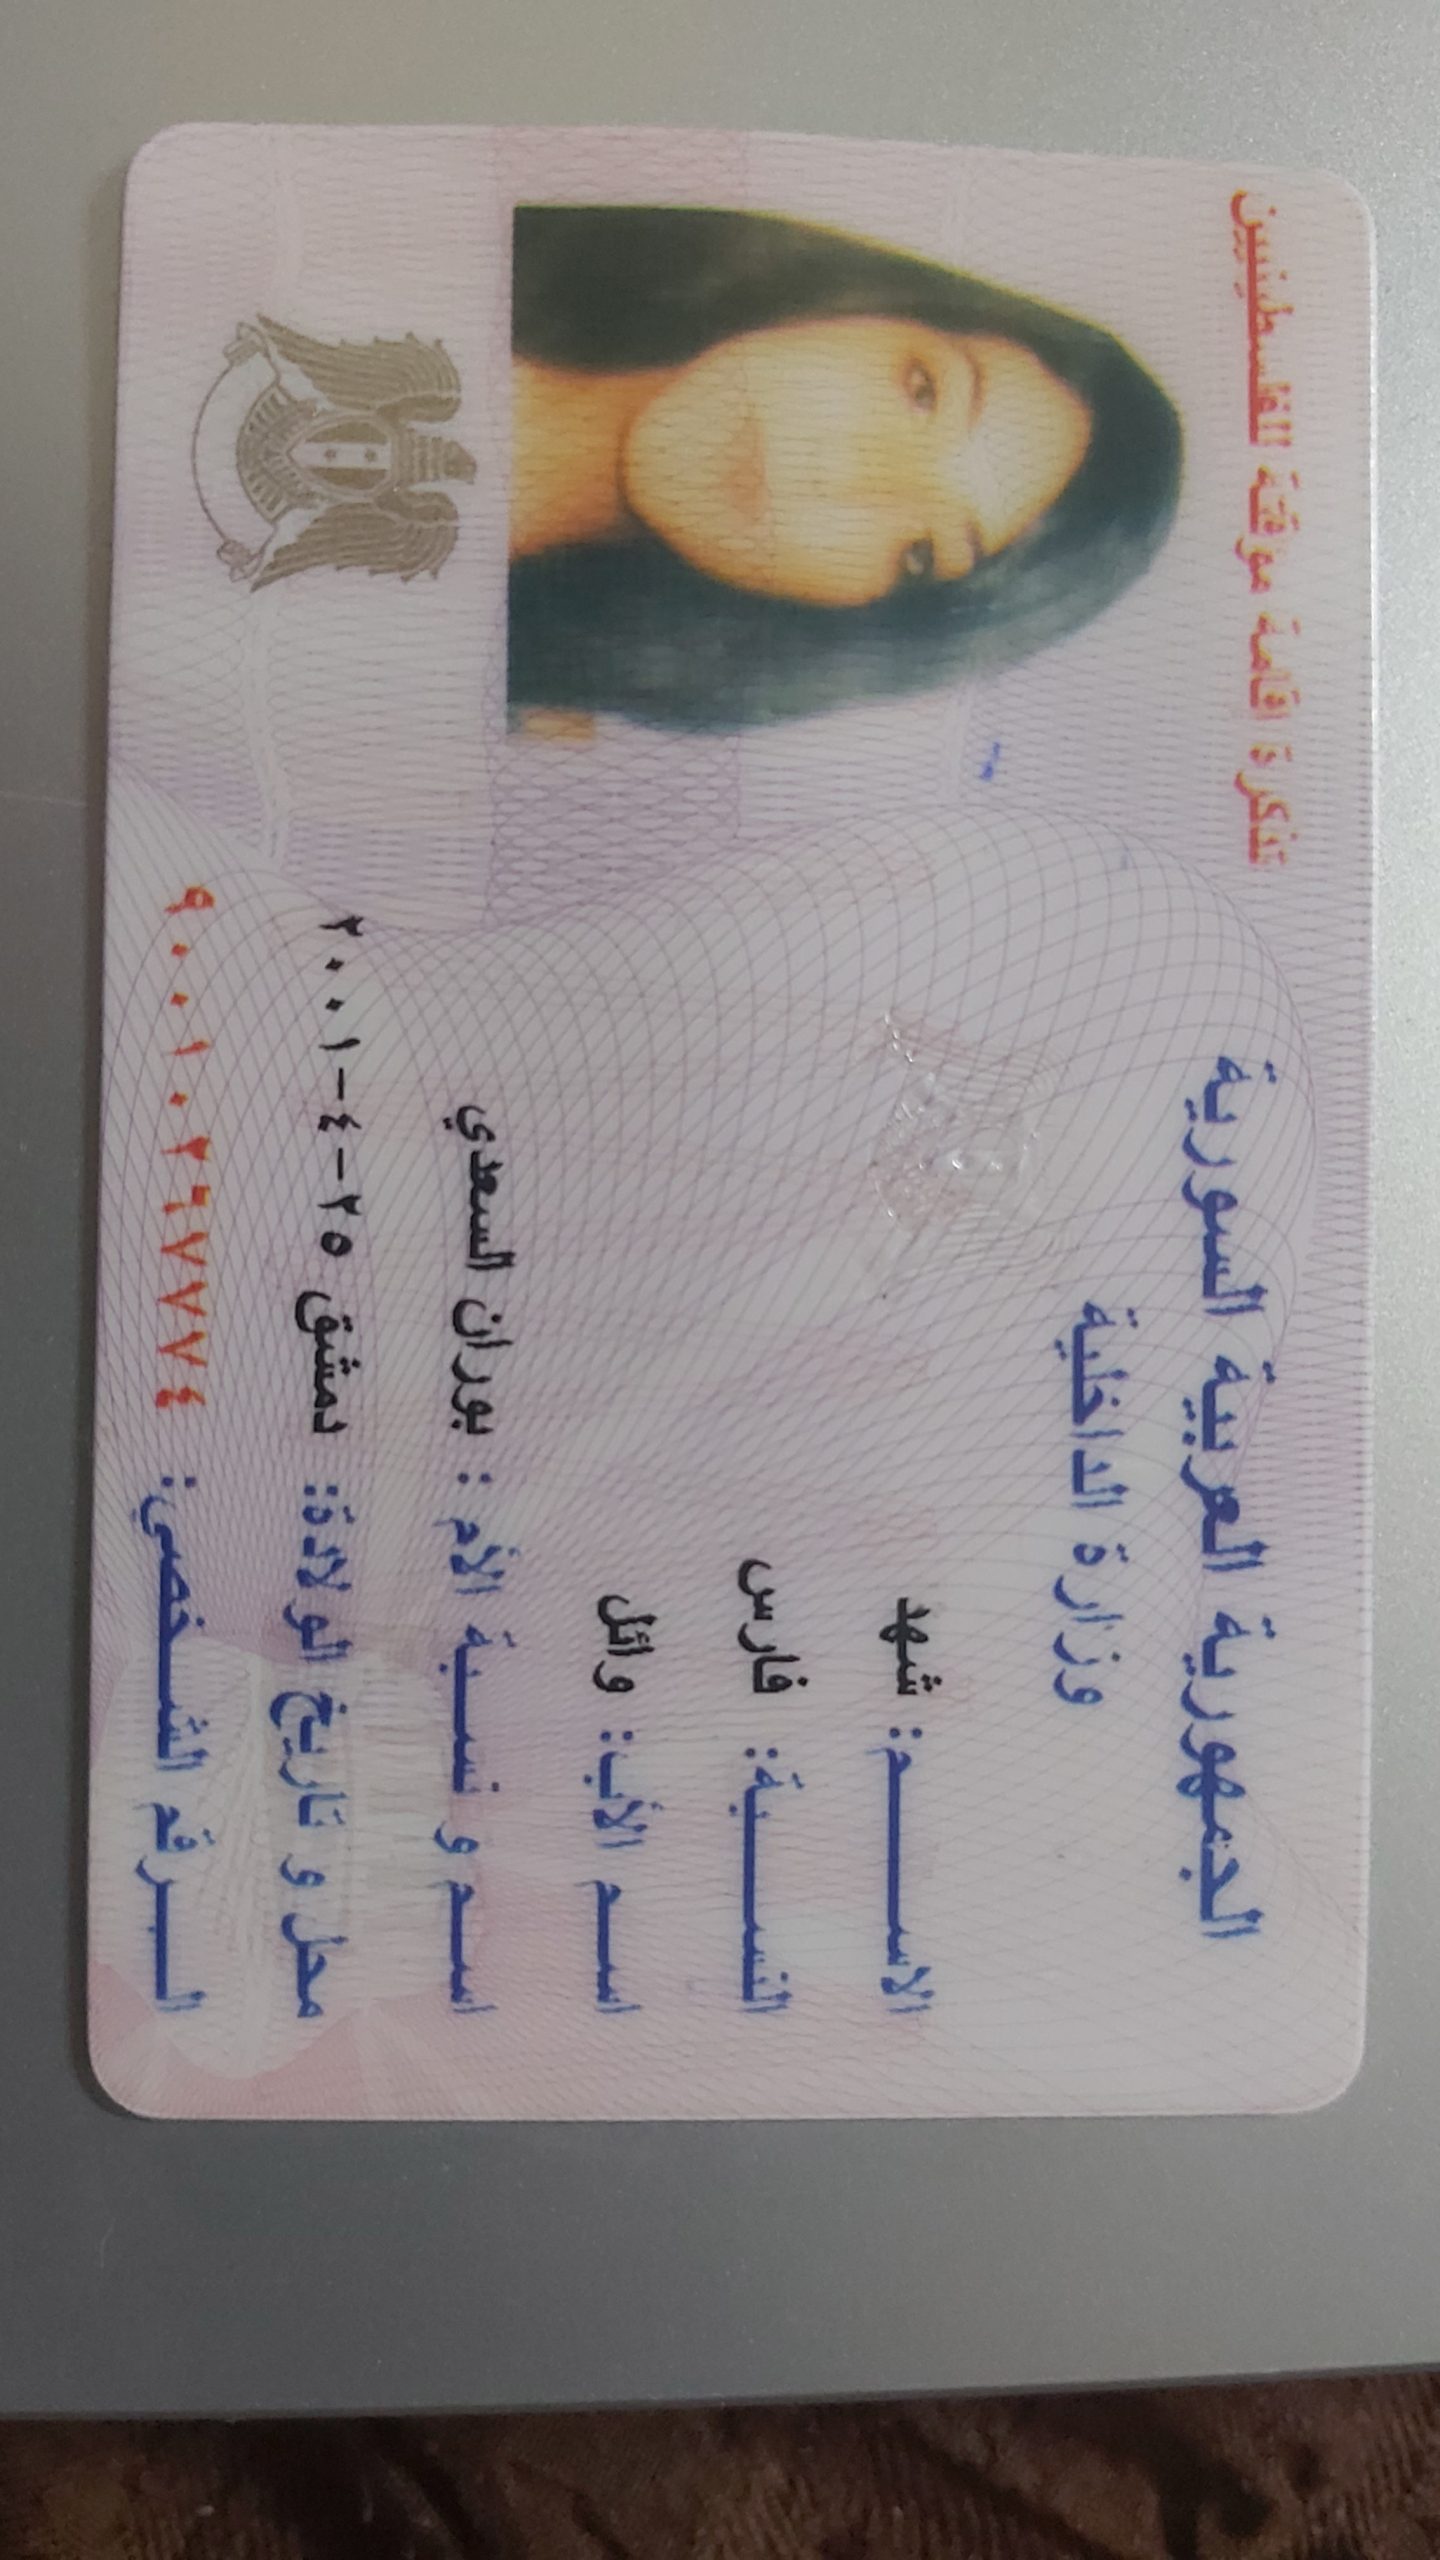 الجمهورية العربية السورية
تذكرة اقامة موقتة للفلسطينيين
وزارة الداخلية
الاسم: شهد
النسبة: فارس
اسم الأب: وائل
اسم و نسبة الأم : بوران السعدي
محل و تاريخ الولادة: دمشق ٢٥-٤-٢٠٠١
الرقم الشخصي: ٩٠٠١٠٢٦٧٧٧٤